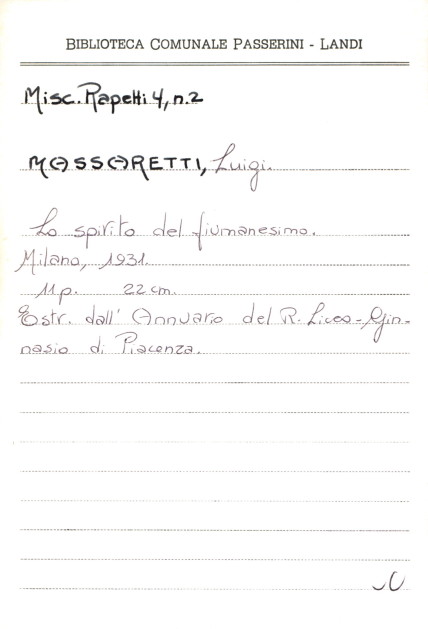 BIBLIOTECA COMUNALE PASSERINI - LANDI
Misc. Rapetti 4, n.2
MASSARETTI, Luigi.
Lo spirito del fiumanesimo.
Milano, 1931.
11 p. 22 cm.
Estr. dall' Annuario del R. Liceo-Gin-
nasio di Piacenza.